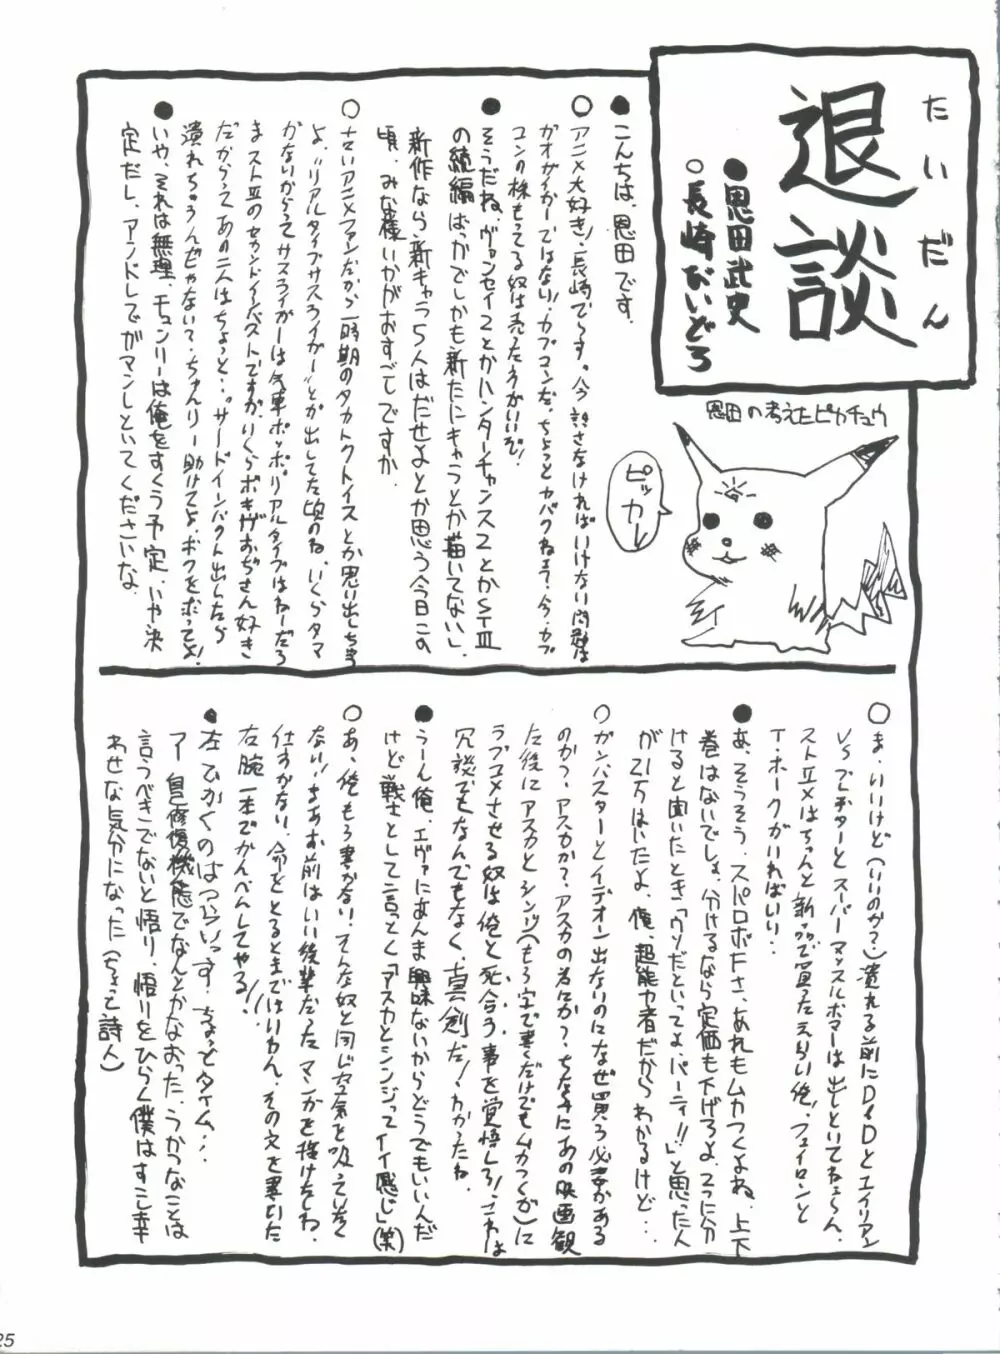 たいだん
退談
●恩田武史
○長崎おいどろ
恩田の考えたピカチュウ
ピッカー
●こんちは、恩田です。
○アニメ大好き!長崎で〜す。今話さなければいけない問題は
ガオガイガーではない!カプコンだ。ちょっとヤバくねェ?今、カプ
コンの株もってる奴は売ったうがいいぞ!
●そうだね。ヴァンセイ2とかハンターチャンス2とかストIII
の続編ばっかでしかも新たにキャラとか描いてない!
新作なら新キャラ5人はだせよとか思う今日この
頃、みな様いかがおすごしですか。
○せいアニメファンだから一時期のタカトクトイスとか思い出しちゃう
よ。"リアルタイプサスライガー"とか出してた頃のね、いくらタマ
がないからってサスライガーは汽車ポッポ。リアルタイプはねーだろ
まぁストIIIのセカンドインパクトですが、いくらボギーおぢさん好き
だからってあの二人はちょっと…"サードインパクト出したら
潰れちゃうんぢゃないで?ちゅんリー助けてよ、ボクをぶってよ!
●いや、それは無理。チュンリーは俺をすくう予定、いや決
定だし。アンドレでガマンしといてくださいな。
○ま、いいけど(いいのか?)潰れる前にD&Dとエイリアン
VSプレデターとスーパーマッスルボマーは出しといてねぇ〜ん。
ストIIXはちゃんと新品で買ったえらい俺!フェイロンと
T・ホークがいればいい!
●あ、そうそう、スパロボFさ、あれもムカつくよね。上下
巻はないでしょ。分けるなら定価も下げろよ。2つに分
けると聞いたとき「ウソだといってよ、バーディ!!」と思った人
が21万はいたよ。俺、超能力者だからわかるけど…
○ガンバスターとイデオン出ないのになぜ買う必要がある
のか?アスカか?アスカの為にか?ちなみにあの映画観
た後にアスカとシンジ(もう字で書くだけでもムカつくが)に
ラブコメさせる奴は俺と死合う事を覚悟しろ!これは
冗談でもなんでもなく、真剣だ!わかったね。
●うーん俺、エヴァにあんま興味ないからどうでもいいんだ
けど戦士として言っとく「アスカとシンジってイイ感じ」(笑)
○あ、俺もう書かない、そんな奴と同じ空気を吸っていたく
ない!まあお前はいい後輩だった。マンガを描けなくしね、
仕方がない、命をとるとまではいわん、その文を書いた
右腕一本でかんべんしてやる!!
●左でかくのはつらいっす。ちょっとタイム…
アー自己修復機能でなんとかなおった。うかつなことは
言うべきでないと悟り、悟りをひらく僕はすこし幸
わせな気分になった(ちょっと詩人)
25